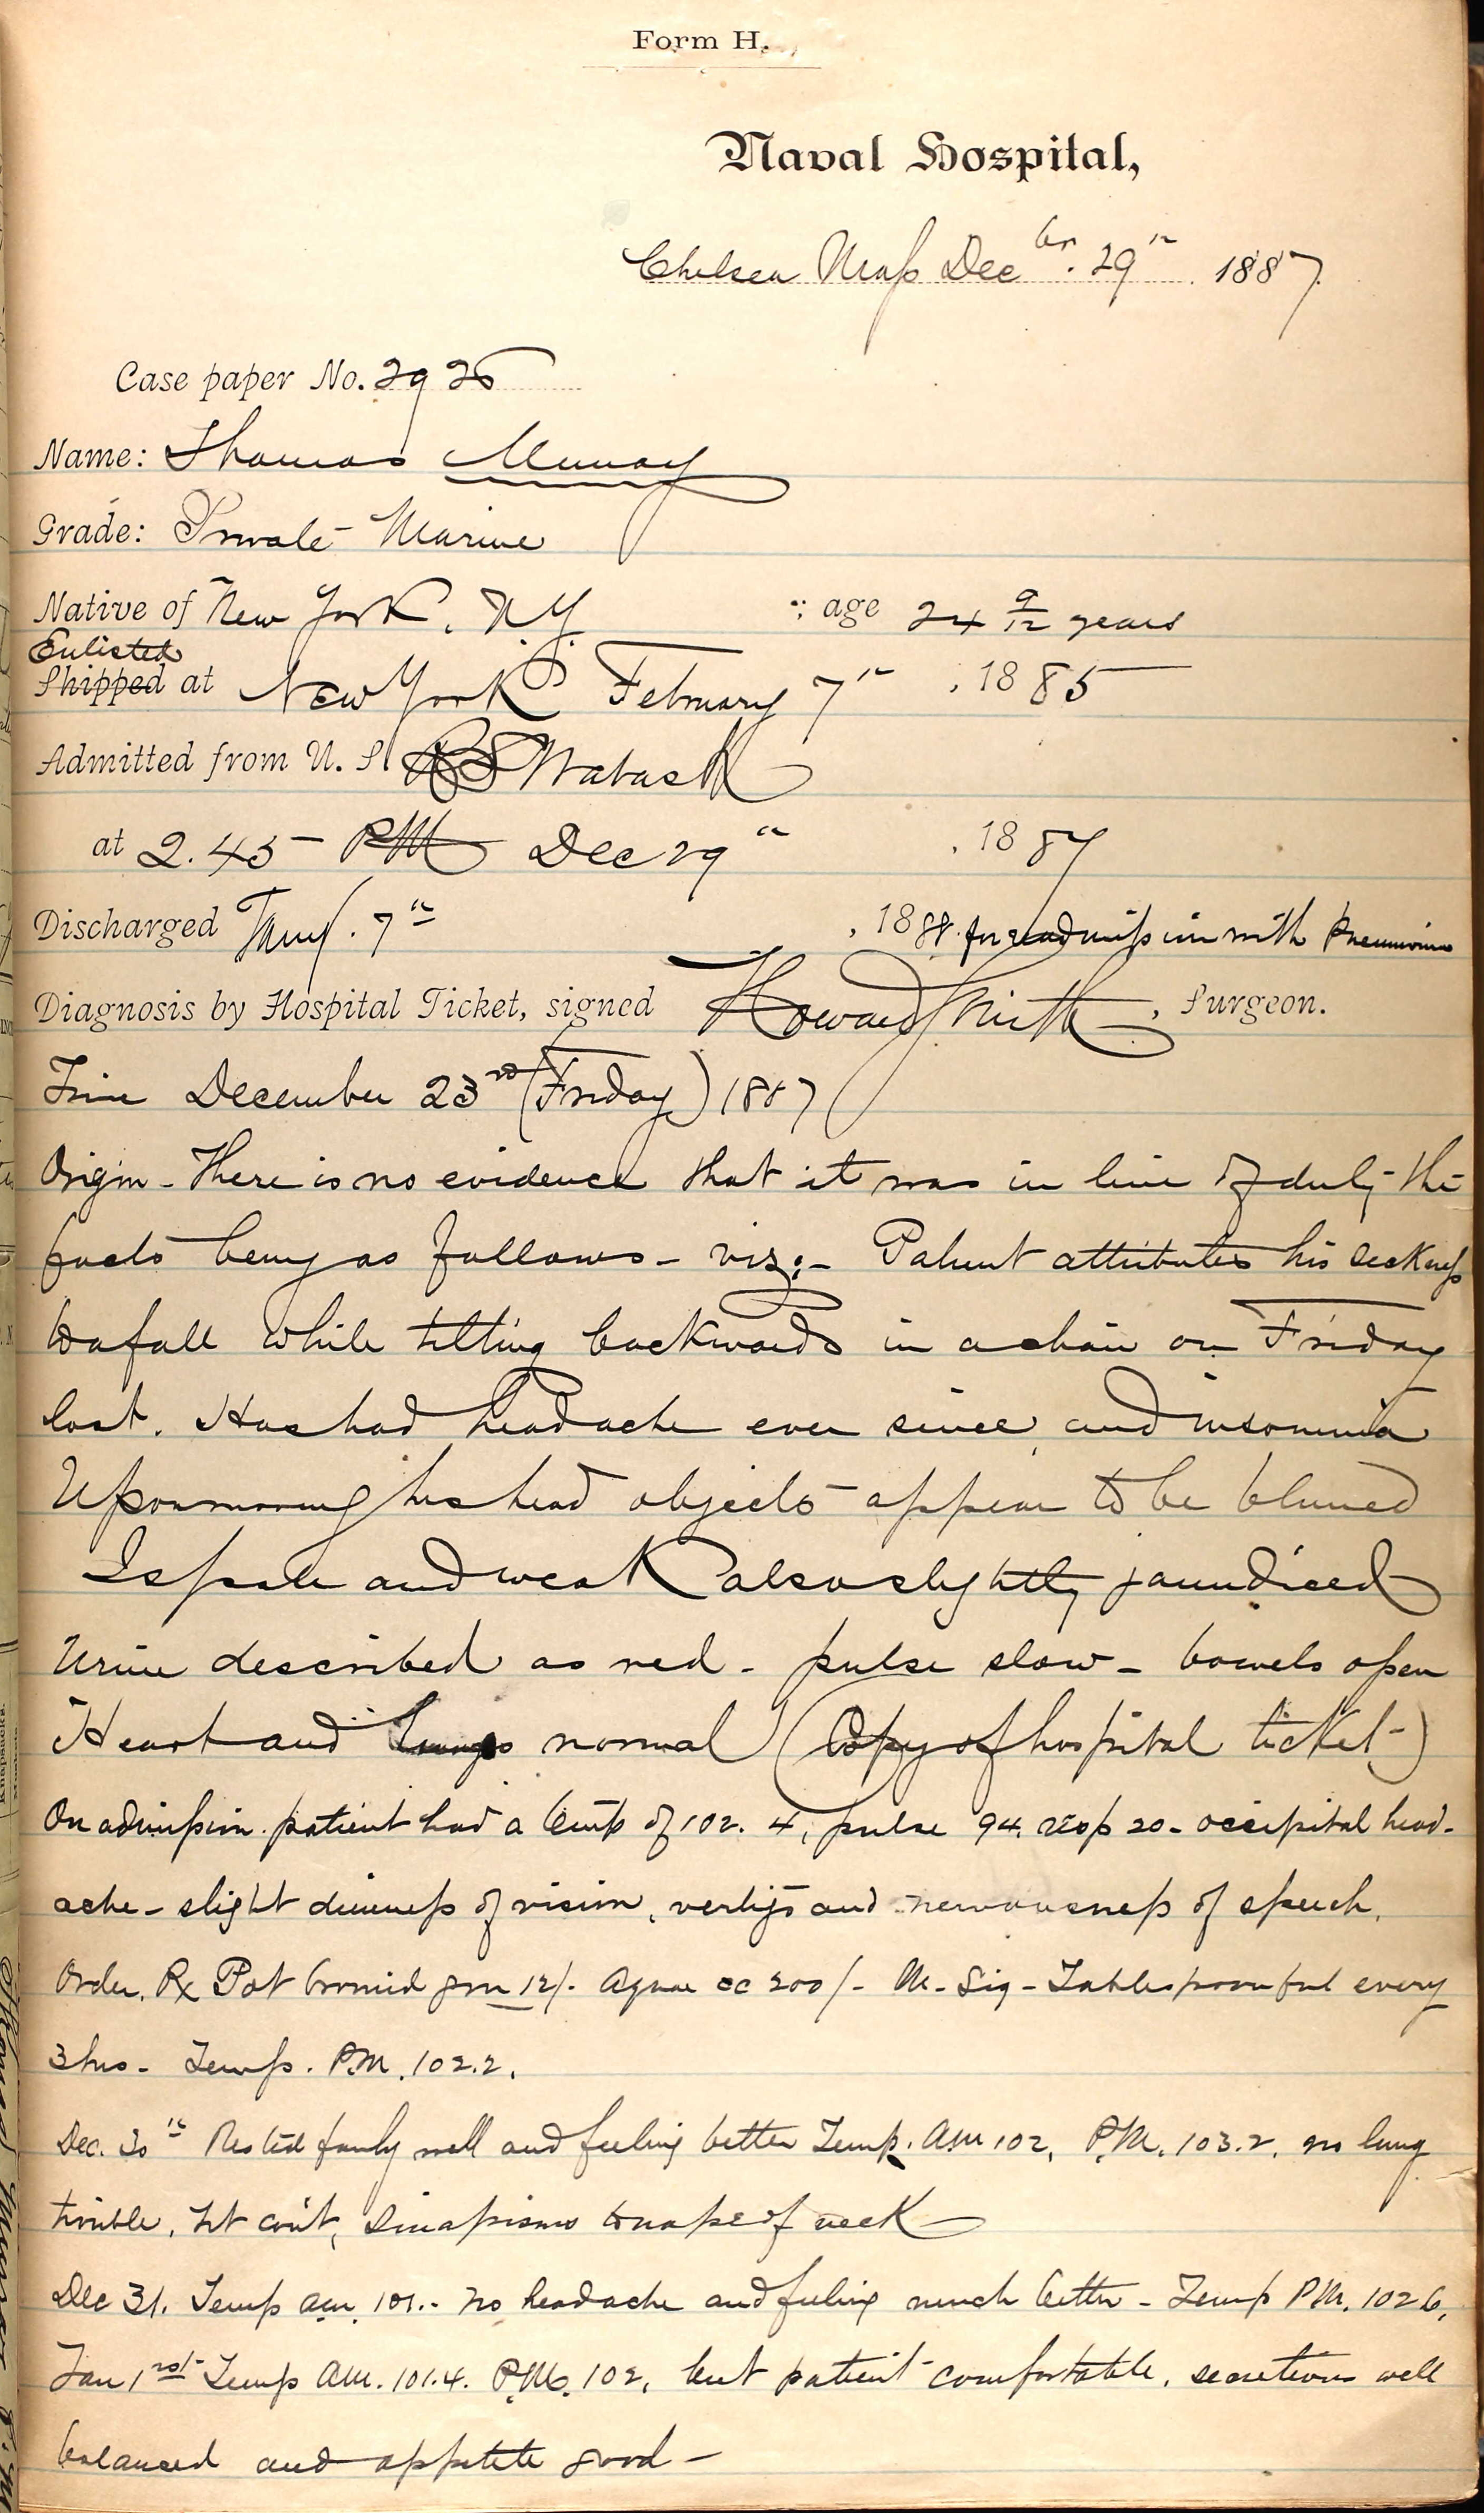 Form H.
Naval Hospital,
Chelsea Mass Dec br. 29th 1887
Case paper No. 2926
Name: Thomas Murray
Grade: Private Marine
Native of New York, N.Y. ; age 24 9/12 years
Enlisted
Shipped at New York February 7th, 1885
Admitted from U. S. R S Wabash
at 2.45 P.M. Dec 29th, 1887
Discharged Jany. 7th, 1888. for readmission with Pneumonia
Diagnosis by Hospital Ticket, signed Howard Smith, Surgeon.
Time December 23rd (Friday) 1887
Origin - There is no evidence that it was in line of duty the
facts being as follows - viz:- Patient attributes his sickness
to a fall while tilting backwards in a chair on Friday
last. Has had headache ever since, and insomnia
Upon moving his head objects appear to be blurred
Is pale and weak also slightly jaundiced
Urine described as red - pulse slow - bowels open
Heart and lungs normal (Copy of hospital ticket)
On admission patient had a temp of 102.4, pulse 94. resp 20 - occipital head-
ache - slight dimness of vision, vertigo and nervousness of speech.
Order. Rx Pot bromid grm 12/- Aquae cc 200/- M. Sig - Tablespoonful every
3 hrs - Temp. P.M. 102.2.
Dec. 30th Rested fairly well and feeling better Temp. AM 102. P.M. 103.2. no lung
trouble. trt con't, sinapisms to nape of neck
Dec 31. Temp am. 101. - no headache and feeling much better - Temp P.M. 102.6.
Jan 1rst Temp AM. 101.4. P.M. 102, but patient comfortable, secretions well
balanced and appetite good -